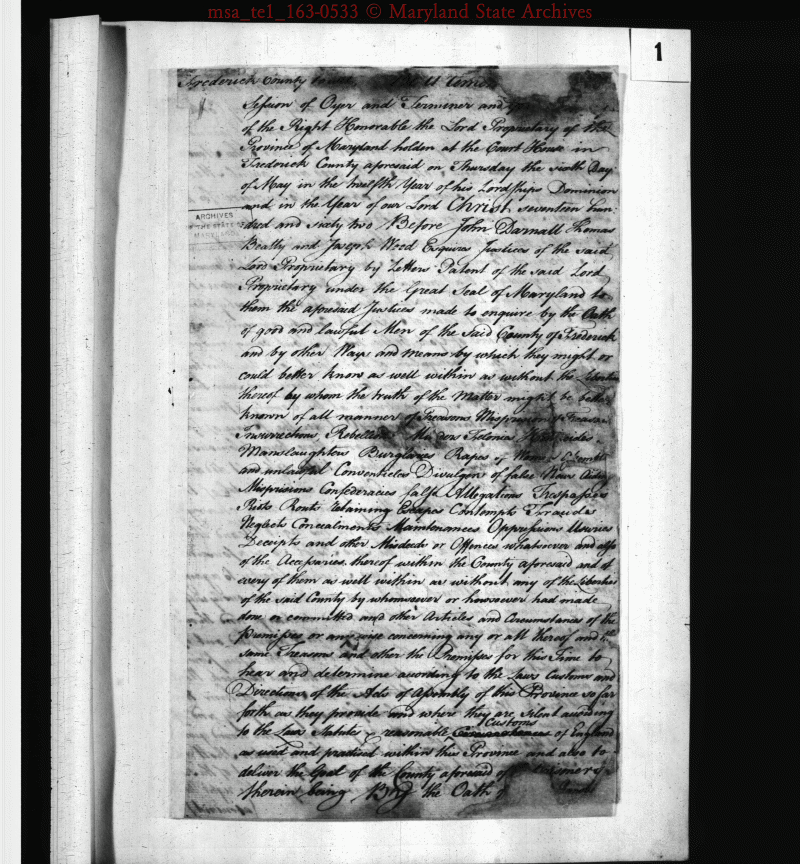 msa_te1_163-0533 © Maryland State Archives
1
Frederick County
Session of Oyer and Terminer and
of the Right Honorable the Lord Proprietary of the
Province of Maryland holden at the Court House in
Frederick County aforesaid on Thursday the sixth Day
of May in the twelfth Year of his Lordships Dominion
and in the Year of our Lord Christ seventeen hun
dred and sixty two Before John Darnall Thomas
Beatty and Joseph Wood Esquires Justices of the said
Lord Proprietary by Letters Patent of the said Lord
Proprietary under the Great Seal of Maryland to
them the aforesaid Justices made to enquire by the Oath
of good and lawful Men of the said County of Frederick
and by other Ways and means by which they might or
could better know as well within as without the Liberties
thereof by whom the truth of the Matter might be better
known of all manner of Treasons Misprisions of Treason
Insurrections Rebellions Murders Felonies Homicides
Manslaughters Burglaries Rapes of Women
and unlawful Conventicles Divulgers of false News
Misprisions Confederacies false Allegations Trespasses
Riots Routs retaining Escapes Contempts Frauds
Neglects Concealments Maintenances Oppressions Usuries
Deceipts and other Misdeeds or Offences whatsoever and also
of the Accessaries thereof within the County aforesaid and of
every of them as well within as without any of the Liberties
of the said County by whomsoever or howsoever had made
done or committed and other Articles and Circumstances of the
premisses or any wise concerning any or all thereof and the
same Treasons and other the Premisses for this Time to
hear and determine according to the Laws Customs and
Directions of the Acts of Assembly of this Province so far
forth as they provide and where they are silent according
to the Laws Statutes & reasonable Customs of England
as used and practised within this Province and also to
deliver the Goal of the County aforesaid of Prisoners
therein being By the Oath of
ARCHIVES
THE STATE OF
MARYLAND